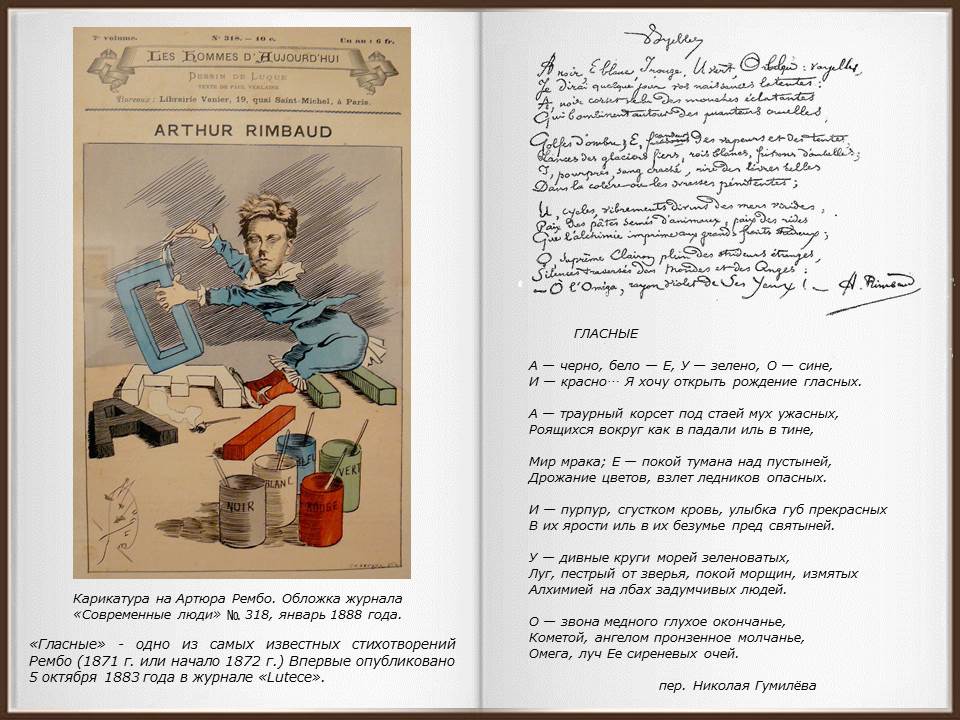 7e volume. No 318. — 10 c. Un an : 6 fr.
LES HOMMES D'AUJOURD'HUI
DESSIN DE LUQUE
TEXTE DE PAUL VERLAINE
Bureaux : Librairie Vanier, 19, quai Saint-Michel, à Paris.
ARTHUR RIMBAUD
A
BLEU
VERT
BLANC
NOIR
ROUGE
Карикатура на Артюра Рембо. Обложка журнала
«Современные люди» №. 318, январь 1888 года.
«Гласные» - одно из самых известных стихотворений
Рембо (1871 г. или начало 1872 г.) Впервые опубликовано
5 октября 1883 года в журнале «Lutece».
Voyelles
A noir, E blanc, I rouge, U vert, O bleu : voyelles,
Je dirai quelque jour vos naissances latentes :
A, noir corset velu des mouches éclatantes
Qui bombinent autour des puanteurs cruelles,
Golfes d'ombre ; E, candeurs des vapeurs et des tentes,
Lances des glaciers fiers, rois blancs, frissons d'ombelles ;
I, pourpres, sang craché, rire des lèvres belles
Dans la colère ou les ivresses pénitentes ;
U, cycles, vibrements divins des mers virides,
Paix des pâtis semés d'animaux, paix des rides
Que l'alchimie imprime aux grands fronts studieux ;
O, suprême Clairon plein des strideurs étranges,
Silences traversés des Mondes et des Anges :
— O l'Oméga, rayon violet de Ses Yeux ! — A. Rimbaud
ГЛАСНЫЕ
А — черно, бело — Е, У — зелено, О — сине,
И — красно… Я хочу открыть рождение гласных.
А — траурный корсет под стаей мух ужасных,
Роящихся вокруг как в падали иль в тине,
Мир мрака; Е — покой тумана над пустыней,
Дрожание цветов, взлет ледников опасных.
И — пурпур, сгустком кровь, улыбка губ прекрасных
В их ярости иль в их безумье пред святыней.
У — дивные круги морей зеленоватых,
Луг, пестрый от зверья, покой морщин, измятых
Алхимией на лбах задумчивых людей.
О — звона медного глухое окончанье,
Кометой, ангелом пронзенное молчанье,
Омега, луч Ее сиреневых очей.
пер. Николая Гумилёва